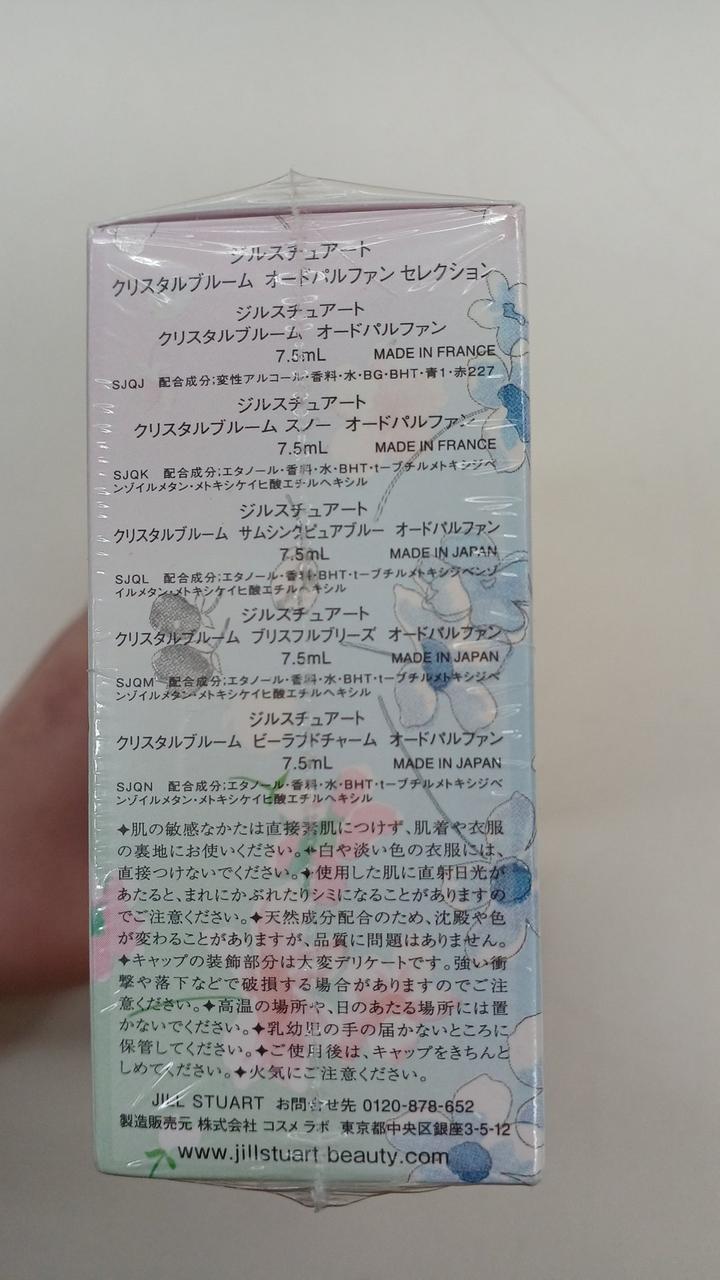 ジルスチュアート
クリスタルブルーム オードパルファン セレクション
ジルスチュアート
クリスタルブルーム オードパルファン
7.5mL MADE IN FRANCE
SJQJ 配合成分;変性アルコール・香料・水・BG・BHT・青1・赤227
ジルスチュアート
クリスタルブルーム スノー オードパルファン
7.5mL MADE IN FRANCE
SJQK 配合成分;エタノール・香料・水・BHT・t-ブチルメトキシジベ
ンゾイルメタン・メトキシケイヒ酸エチルヘキシル
ジルスチュアート
クリスタルブルーム サムシングピュアブルー オードパルファン
7.5mL MADE IN JAPAN
SJQL 配合成分;エタノール・香料・水・BHT・t-ブチルメトキシジベンゾ
イルメタン・メトキシケイヒ酸エチルヘキシル
ジルスチュアート
クリスタルブルーム ブリスフルブリーズ オードパルファン
7.5mL MADE IN JAPAN
SJQM 配合成分;エタノール・香料・水・BHT・t-ブチルメトキシジベ
ンゾイルメタン・メトキシケイヒ酸エチルヘキシル
ジルスチュアート
クリスタルブルーム ビーラブドチャーム オードパルファン
7.5mL MADE IN JAPAN
SJQN 配合成分;エタノール・香料・水・BHT・t-ブチルメトキシジベ
ンゾイルメタン・メトキシケイヒ酸エチルヘキシル
✦肌の敏感なかたは直接素肌につけず、肌着や衣服
の裏地にお使いください。✦白や淡い色の衣服には、
直接つけないでください。✦使用した肌に直射日光が
あたると、まれにかぶれたりシミになることがありますの
でご注意ください。✦天然成分配合のため、沈殿や色
が変わることがありますが、品質に問題はありません。
✦キャップの装飾部分は大変デリケートです。強い衝
撃や落下などで破損する場合がありますのでご注
意ください。✦高温の場所や、日のあたる場所には置
かないでください。✦乳幼児の手の届かないところに
保管してください。✦ご使用後は、キャップをきちんと
しめてください。✦火気にご注意ください。
JILL STUART お問合せ先 0120-878-652
製造販売元 株式会社 コスメ ラボ 東京都中央区銀座3-5-12
www.jillstuart-beauty.com